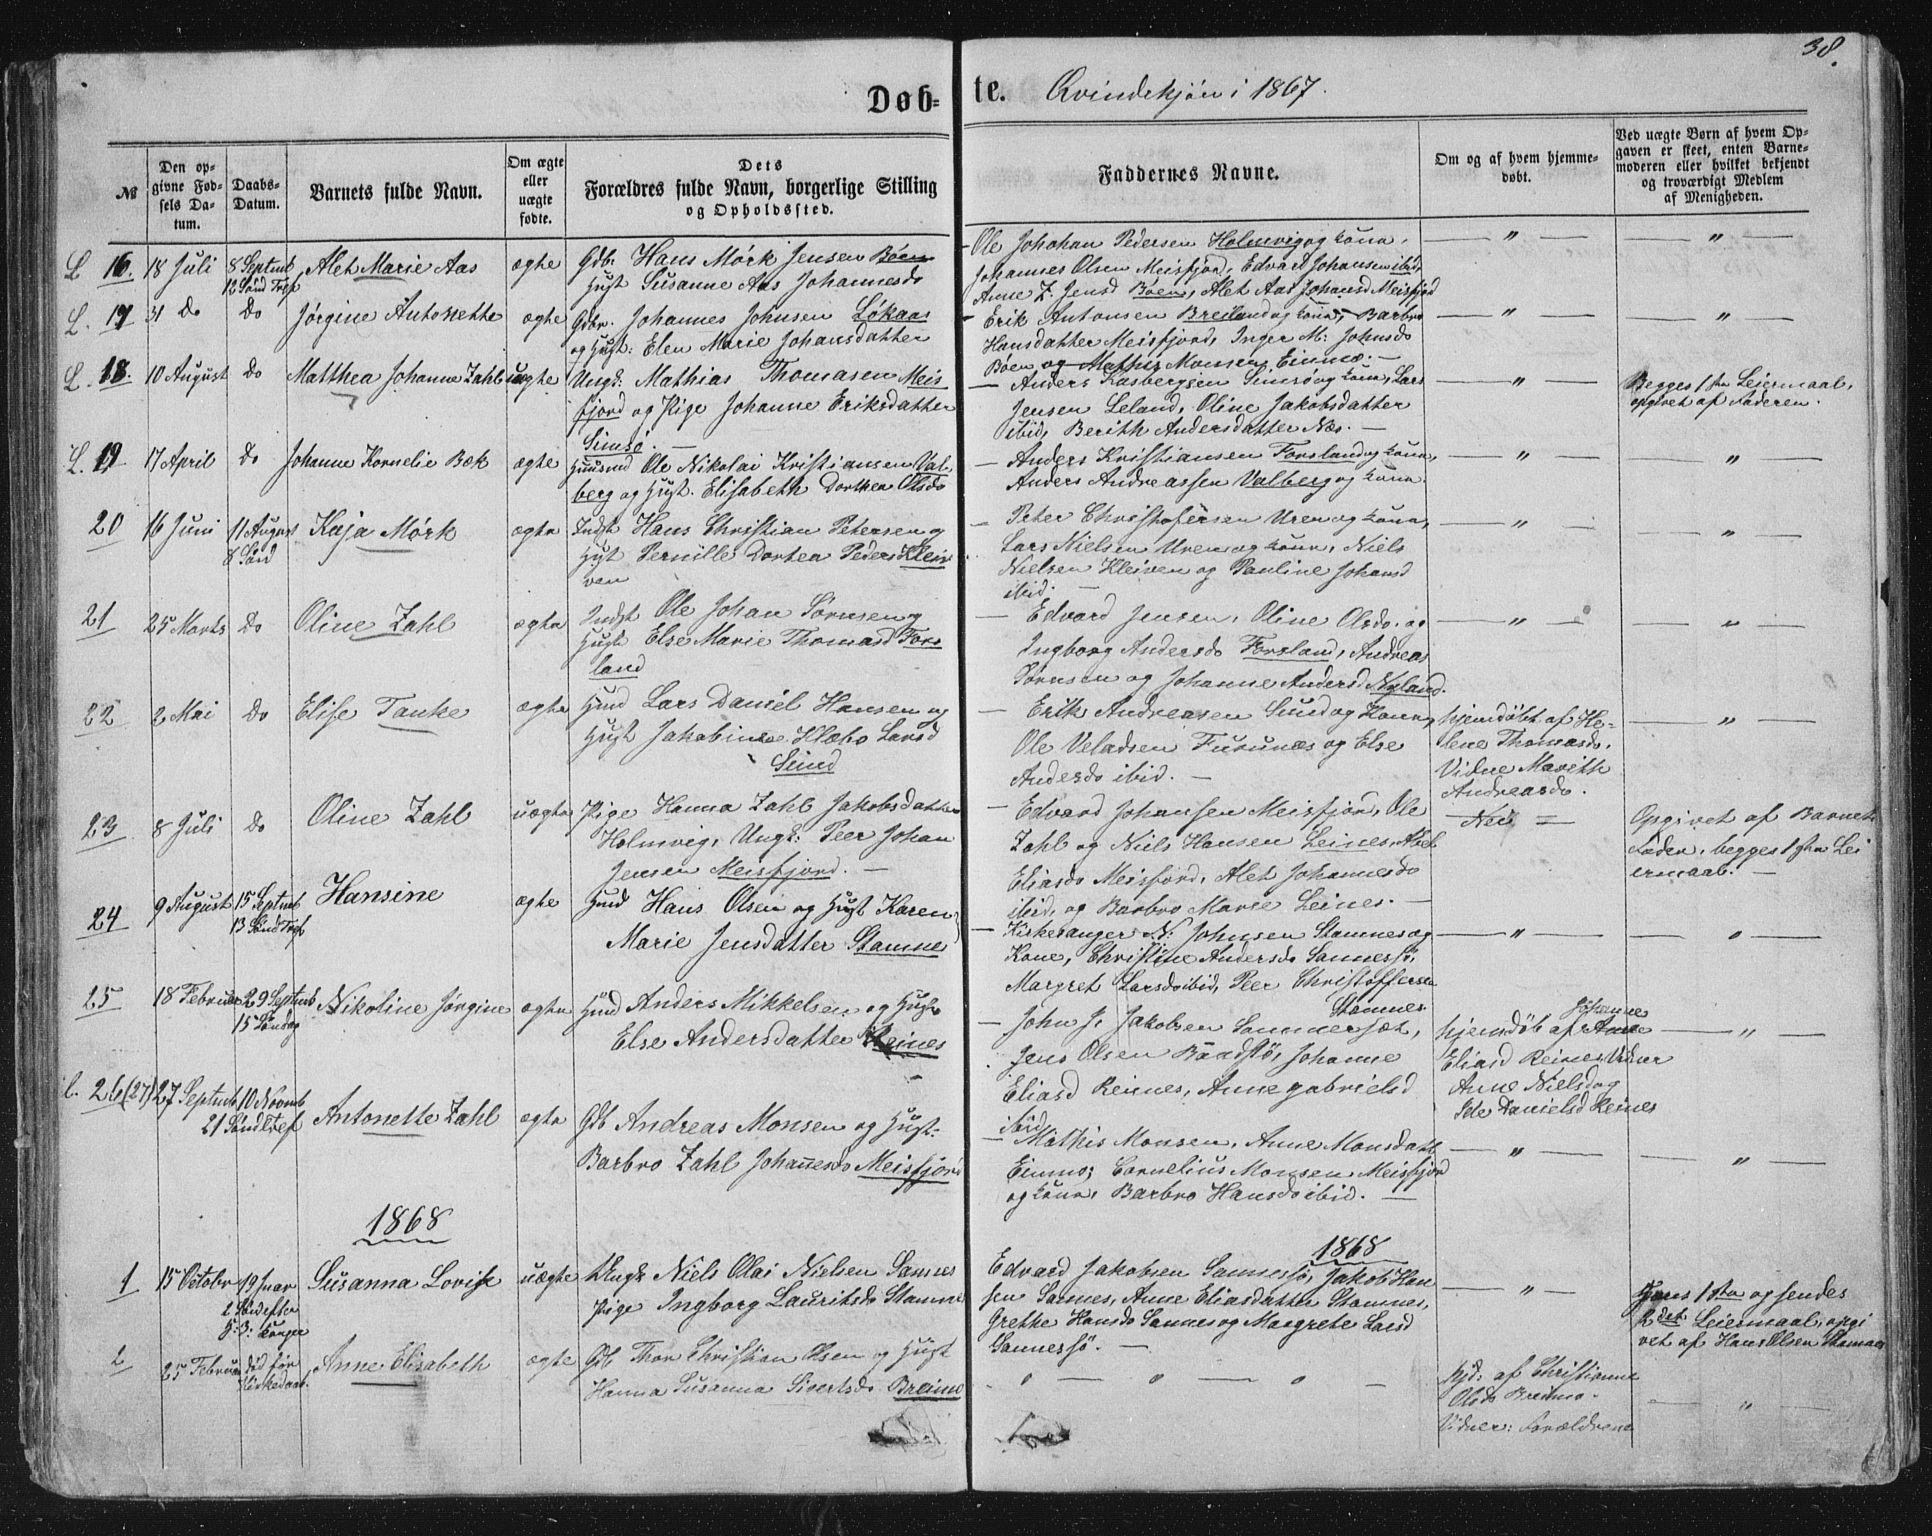 38.
Døb- te. Qvindekjön i 1867.
№
Den opgivne Fødsels Datum.
Daabs-Datum.
Barnets fulde Navn.
Om ægte eller uægte fødte.
Dets Forældres fulde Navn, borgerlige Stilling og Opholdssted.
Faddernes Navne.
Om og af hvem hjemmedøbt.
Ved uægte Børn af hvem Opgaven er skeet, enten Barnemoderen eller hvilket bekjendt og troværdigt Medlem af Menigheden.
L 16. 18 Juli 8 Septmb 12 Sønd Tref Alet Marie Aas ægte
Gdb. Hans Mørk Jensen Bøen
Hust Susanne Aas Johannesdo
Ole Johan Pedersen Holmvig og kona,
Johannes Olsen Meisfjord, Edvart Johansen ibid,
Anne Z. Jensd Bøen, Alet Aas Johansd Meisfjord
— " — — " —
L. 17 31 do Do Jørgine Antonette ægte
Gdbr. Johannes Johnsen Løkaas
og Hust: Elen Marie Johansdatter
- Erik Antonsen Breiland og kona, Barbro
Hansdatter Meisfjord, Inger M: Johnsdo
Bøen og Mathis Monsen, Einmo. —
— " — — " —
L. 18. 10 August do Matthea Johanne Zahl uægte
Ungk: Mathias Thomasen Meis
fjord og Pige Johanne Eriksdatter
Simsö. —
— Anders Kasbergsen Simsö og kona, Lars
Jensen Leland, Oline Jakobsdatter
ibid, Berith Andersdatter Næs. —
— " —
Begges 1ste Leiermaal,
opgivet af Faderen.
L. 19 17 April do Johanne Kornelie Bæk ægte
Huusmd Ole Nikolai Kristiansen Val-
berg og Hust. Elisabeth Dorthea Olsdo
— Anders Kristiansen Forsland og kona,
Anders Andreassen Valberg og kona.
— " — — " —
20 16 Juni 11 August 8 Sønd Kaja Mørk ægte
Indst Hans Christian Petersen og
Hust Pernille Dortea Peders Klei
ven
— Peter Christofersen Uren og kona,
Lars Nielsen Uren og kona, Niels
Nielsen Kleiven og Pauline Johansd
ibid. —
— " — — " —
21 25 Marts do Oline Zahl ægte
Indst Ole Johan Sørnsen og
Hust Else Marie Thomasd Fors
land
— Edvard Jensen, Oline Olsdo. og
Ingborg Andersdo Forsland, Andreas
Sørnsen og Johanne Andersd Nyland.
— " — — " —
22 2 Mai do Elise Tanke ægte
Hmd Lars Daniel Hansen og
Hust Jakobine Klæbo Larsd
Sund
— Erik Andreasen Sund og Kone,
Ole Veladsen Furunæs og Else
Andersdo ibid. —
hjemdøbt af He-
lene Thomasdo.
Vidne Marith
Andreasdo.
— " —
23 8 Juli do Oline Zahl uægte
Pige Hanna Zahl Jakobsdatter
Holmvig, Ungk: Peer Johan
Jensen Meisfjord. —
— Edvard Johansen Meisfjord, Ole
Zahl og Niels Hansen Leines, Alet
Eliasdo Meisfjord, Alet Johannesdo
ibid, og Barbro Marie Leines. —
— Nei —
Opgivet af Barnets
Fader, begges 1ste Lei
ermaal. —
24 9 August 15 Septmb 13 Sønd Tref Hansine ægte
Hmd Hans Olsen og Hust Karen
Marie Jensdatter Stamnes
— Kirkesanger N: Johnsen Stamnes og
Kone, Christine Andersdo Sannessö,
Margret Larsdo ibid, Peer Christoffersen
Stamnes
— " — — " —
25 18 Februar 29 Septmb 15 Søndag Nikoline Jørgine ægte
Hmd Anders Mikkelsen og Hust
Else Andersdatter Reines
— John J. Jakobsen Sannersæt,
Jens Olsen Bandsö, Johanne
Eliasd Reines, Anne Gabrielsd
ibid
hjemdøb af Johanne
Eliasd Reines Vidner
Anne Nielsd og
Danielsd Reines
— " —
L. 26 (27) 27 Septmb 10 Novmb 21 Sønd Tref Antonette Zahl ægte
Gdb Andreas Monsen og Hust:
Barbro Zahl Johanesdo Meisfjord
— Mathis Monsen, Anne Monsdatt
Einmo, Cornelius Monsen Meisfjord
og kona, Barbro Hansdo ibid. —
— " — — " —
1868
1868
1 15 Octobr 19 Januar 2 Sønd efter H: 3: Konger Susanna Lovise uægte
Ungk Niels Olai Nielsen Sannes
Pige Ingborg Lauritsdo Stamnes
Edvard Jakobsen Sannessö, Jakob Han
sen Sannes, Anne Eliasdatter Stamnes,
Grethe Hansdo Sannes og Margrete Larsd
Sannessö. —
— " —
Hans 1ste og hendes
2det Leiermaal, opgi
vet af Hans Olsen Stamnes
2 25 Februar død før Kirkedaab. Anne Elisabeth ægte
Gdb Thor Christian Olsen og Hust
Hanna Susanna Sivertsdo Breimo
" — " — " —
Hjd: af Christianne
Olsd Breimo.
Vidner: Forældrene
— " —